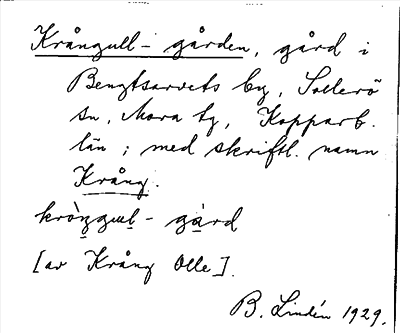 Krångull-gården, gård i
Bengtsarvets by, Sollerö
sn, Mora tg, Kopparb.
län; med skriftl. namn
Krång.
kròŋgɯl-gàrd
[av Krång Olle].
B. Lindén 1929.